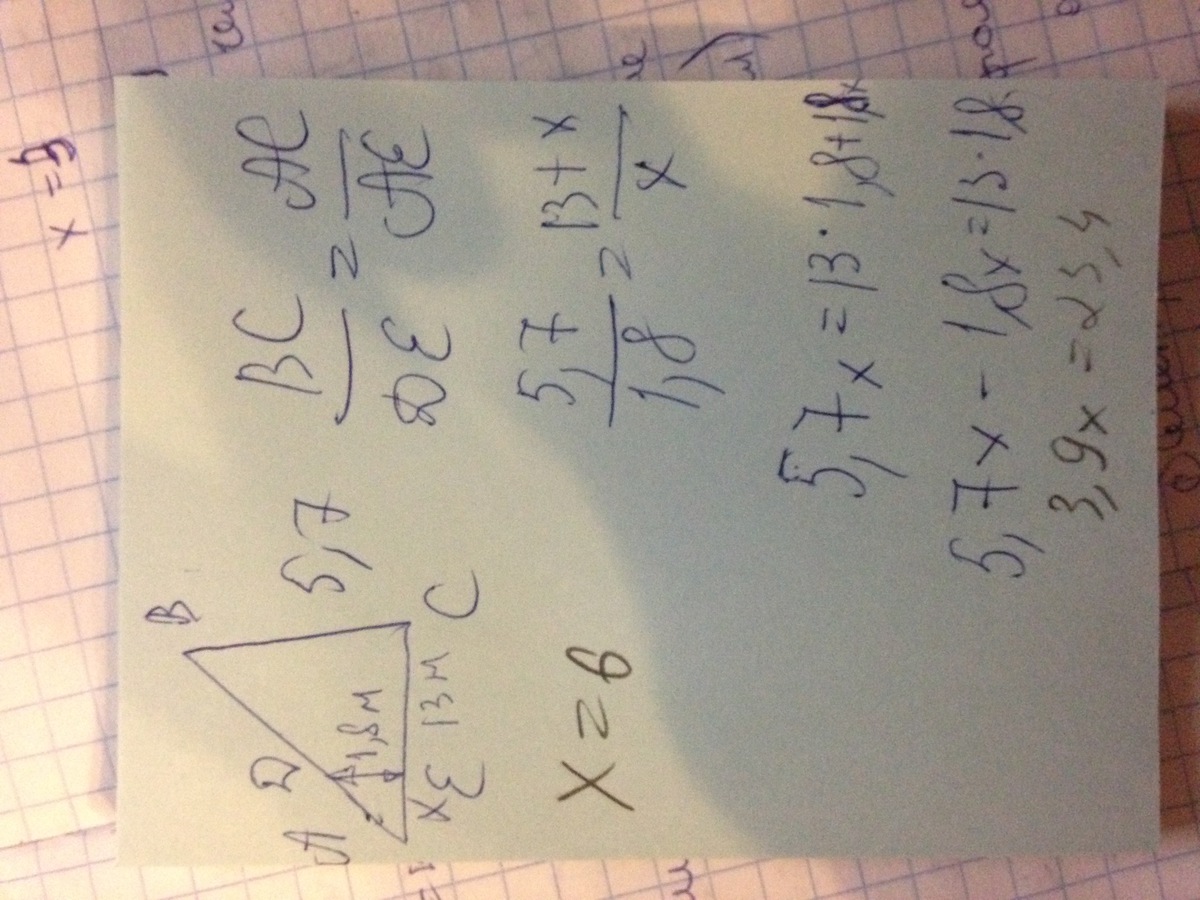 B
D
A
1,8 м
5,7
x E 13 м C
BC / DE = AC / AE
5,7 / 1,8 = 13 + x / x
x = 6
5,7x = 13 · 1,8 + 1,8x
5,7x - 1,8x = 13 · 1,8
3,9x = 23,4
x = 9